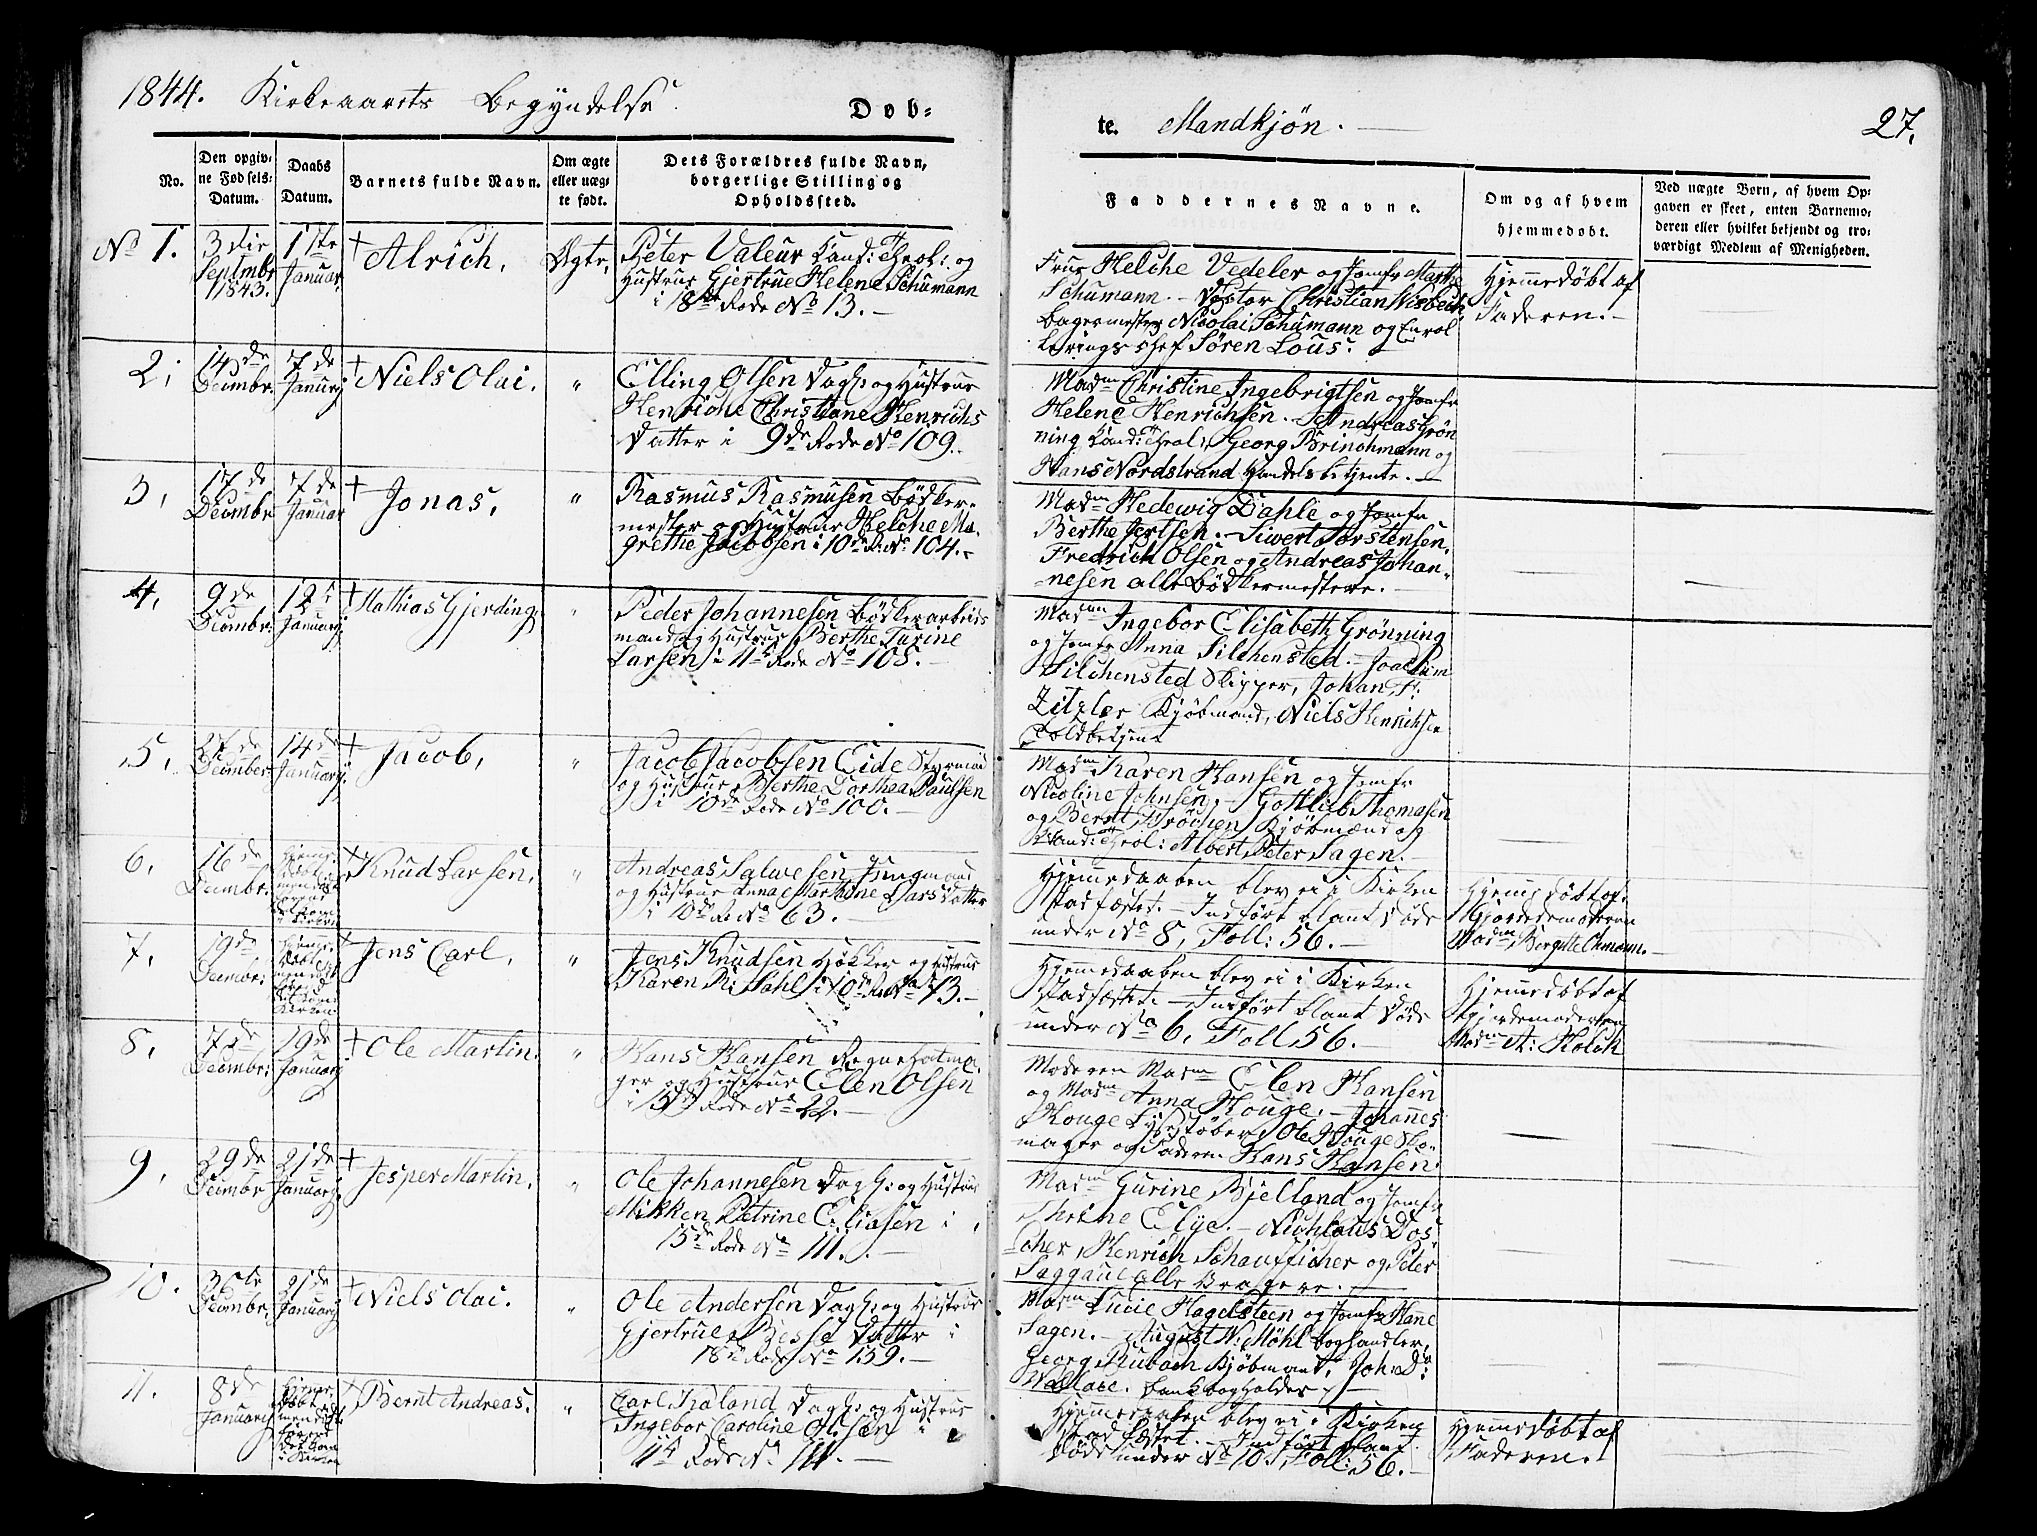 1844. Kirkeaarets Begyndelse.
Døb-
te. Mandkjøn. —
27.
No.
Den opgiv-
ne Fødsels-
Datum.
Daabs
Datum.
Barnets fulde Navn.
Om ægte
eller uæg-
te født.
Dets Forældres fulde Navn,
borgerlige Stilling og
Opholdssted.
Faddernes Navne.
Om og af hvem
hjemmedøbt.
Ved uægte Børn, af hvem Op-
gaven er skeet, enten Barnemo-
deren eller hvilket bekjendt og tro-
værdigt Medlem af Menigheden.
No 1.
3die
Septmbr
1843.
1ste
Januar.
+ Alrich,
Ægte,
Peter Valeur Cand: Theol: og
Hustrue Gjertrue Helene Schumann
i 18de Rode No 13. —
Frue Helche Vedeler og Jomfr Marthe
Schumann. — Doctor Christian Wisbech,
Bagermester Nicolai Schumann og Enrol
lerings Chef Søren Lous.
Hjemmedøbt af
Faderen. —
2,
14de
Decmbr.
7de
Januarj
+ Niels Olai.
"
Elling Olsen Dagk: og Hustrue
Henriche Christiane Henrichs
Datter i 9de Rode No 109.
Madm Christine Ingebrigtsen og Jomfr
Helene Henrichsen. — Andreas Grøn
ning Cand: Theol:, Georg Brinchmann og
Hans Nordstrand Handelsbetjente. —
3,
17de
Decmbr
7de
Januar
+ Jonas,
"
Rasmus Rasmusen Bødker-
mester og Hustrue Helche Ma-
grethe Jacobsen i 10de R: No 104. —
Madm Hedewig Dahle og Jomfr
Berthe Jertsen. — Siwert Torstensen,
Fredrich Olsen og Andreas Johan-
nesen alle Bødkermestere. —
4,
9de
Decmbr:
12te
Januarj
+ Mathias Gjerding,
"
Peder Johannesen Bødkerarbeids
mand og Hustrue Berthe Turine
Larsen i 11te Rode No 105. —
Madm Ingebor Elisabeth Grønning
og Jomfr Anna Silchensted. — Joachim
Silchensted Skipper, Johan F:
Zitzler Kjøbmand, Niels Henrichsen
Toldbetjent
5,
Decmber
14de
Januarj
+ Jacob,
"
Jacob Jacobsen Eide Styrmand
og Hustrue Berthe Dorthea Paulsen
i 10de Rode No 100. —
Madm Karen Hansen og Jomfr
Nicoline Johnsen. — Gottlieb Thomesen
og Bernt Brøchen Kjøbmænd og
Cand: Theol: Albert Peter Sagen. —
6,
16de
Decmbr:
+ Knud Larsen,
"
Andreas Salvesen Jungmand
og Hustrue Anna Marthine Lars Datter
i 10de R: No 63. —
Hjemmedaaben blev ei i Kirken
stadfæstet. — Indført blant Døde
under No 8, Foll: 56. —
Hjemmedøbt af
Gjordemoderen
Madm Birgitte Ehmann. —
7,
19de
Decmbr:
+ Jens Carl,
"
Jens Knudsen Høkker og Hustrue
Karen R: Dahl i 10de Rode No 73. —
Hjemmedaaben blev ei i Kirken
stadfæstet. — Indført blant Døde
under No 6, Foll 56. —
Hjemmedøbt af
Gjordemoderen
Madm A: Holck
8,
7de
Decmbr:
19de
Januarj
+ Ole Martin.
"
Hans Hansen
ger og Hustrue Elen Olsen
i 15de Rode No 22. —
Moderen Madm Elen Hansen
og Madm Anna Houge. — Johannes
Houge Lysestøber, Ole Houge Sko-
mager og Faderen Hans Hansen.
9,
29de
Decmbr
21de
Januarj
+ Jesper Martin,
"
Ole Johannesen Dagk: og Hustrue
Mikken Petrine Eliasen i
15de Rode No 111. —
Madm Gurine Bjelland og Jomfr
Thrine Elije. — Nichlaus Dos-
cher, Henrich Schauficher og Peter
Saggaue alle Bragere. —
10.
30te
Decmbr:
21de
Januarj
+ Niels Olai.
"
Ole Andersen Dagk: og Hustrue
Gjertrue Besse Datter i
18de Rode No 159. —
Madm Lucie Hagelsteen og Jomfr Hanne
Sagen. — August W: Møhl Boghandler,
Georg Rubach Kjøbmand, Joh: D:
Wallace. Bankbogholder. —
11.
8de
Januarj
+ Bernt Andreas.
"
Carl Kaland Dagk: og Hustrue
Ingebor Caroline Olsen i
11te Rode No 111. —
Hjemmedaaben blev ei i Kirken
stadfæstet. — Indført blant
Døde under No 10. Foll: 56. —
Hjemmedøbt af
Faderen.